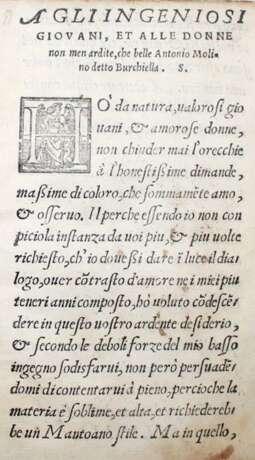 A GLI INGENIOSI
GIOVANI, ET ALLE DONNE
non men ardite, che belle Antonio Moli-
no detto Burchiella. S.
HO da natura, ualorosi gio
uani, & amorose donne,
non chiuder mai l'orecchie
à l'honestißime dimande,
maßime di coloro, che sommamẽte amo,
& osseruo. Il perche essendo io non con
picciola instanza da uoi piu, & piu uolte
richiesto, ch'io doueßi dare ĩ luce il dia-
logo, ouer cõtrasto d'amore ne i miei piu
teneri anni composto, hò uoluto cõdescẽ
dere in questo uostro ardente desiderio,
& secondo le deboli forze del mio basso
ingegno sodisfarui, non però persuadẽ-
domi di contentarui à pieno, percioche la
materia è soblime, et alta, et richiedereb-
be un Mantoano stile. Ma in quello,